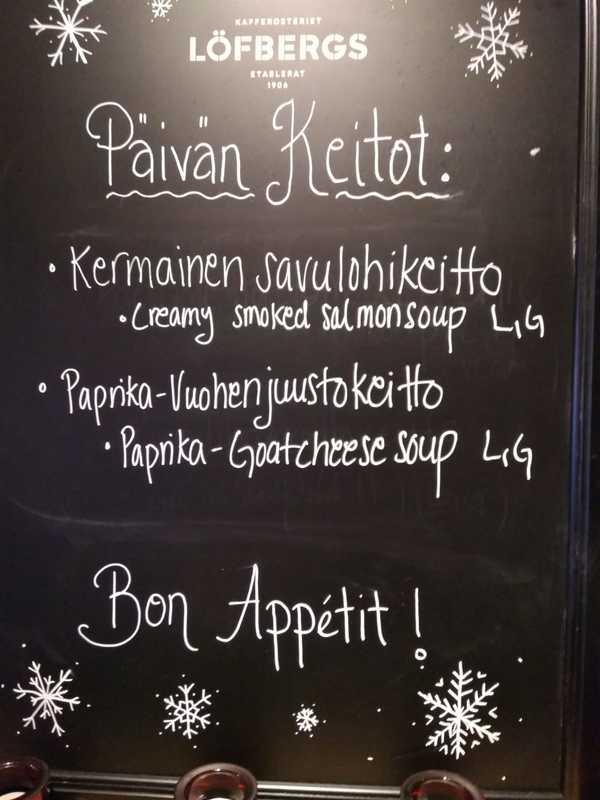 KAFFEROSTERIET
LÖFBERGS
ETABLERAT
1906
Päivän Keitot:
• Kermainen savulohikeitto
• Creamy smoked salmonsoup L,G
• Paprika-Vuohenjuustokeitto
• Paprika-Goatcheese soup L,G
Bon Appétit!